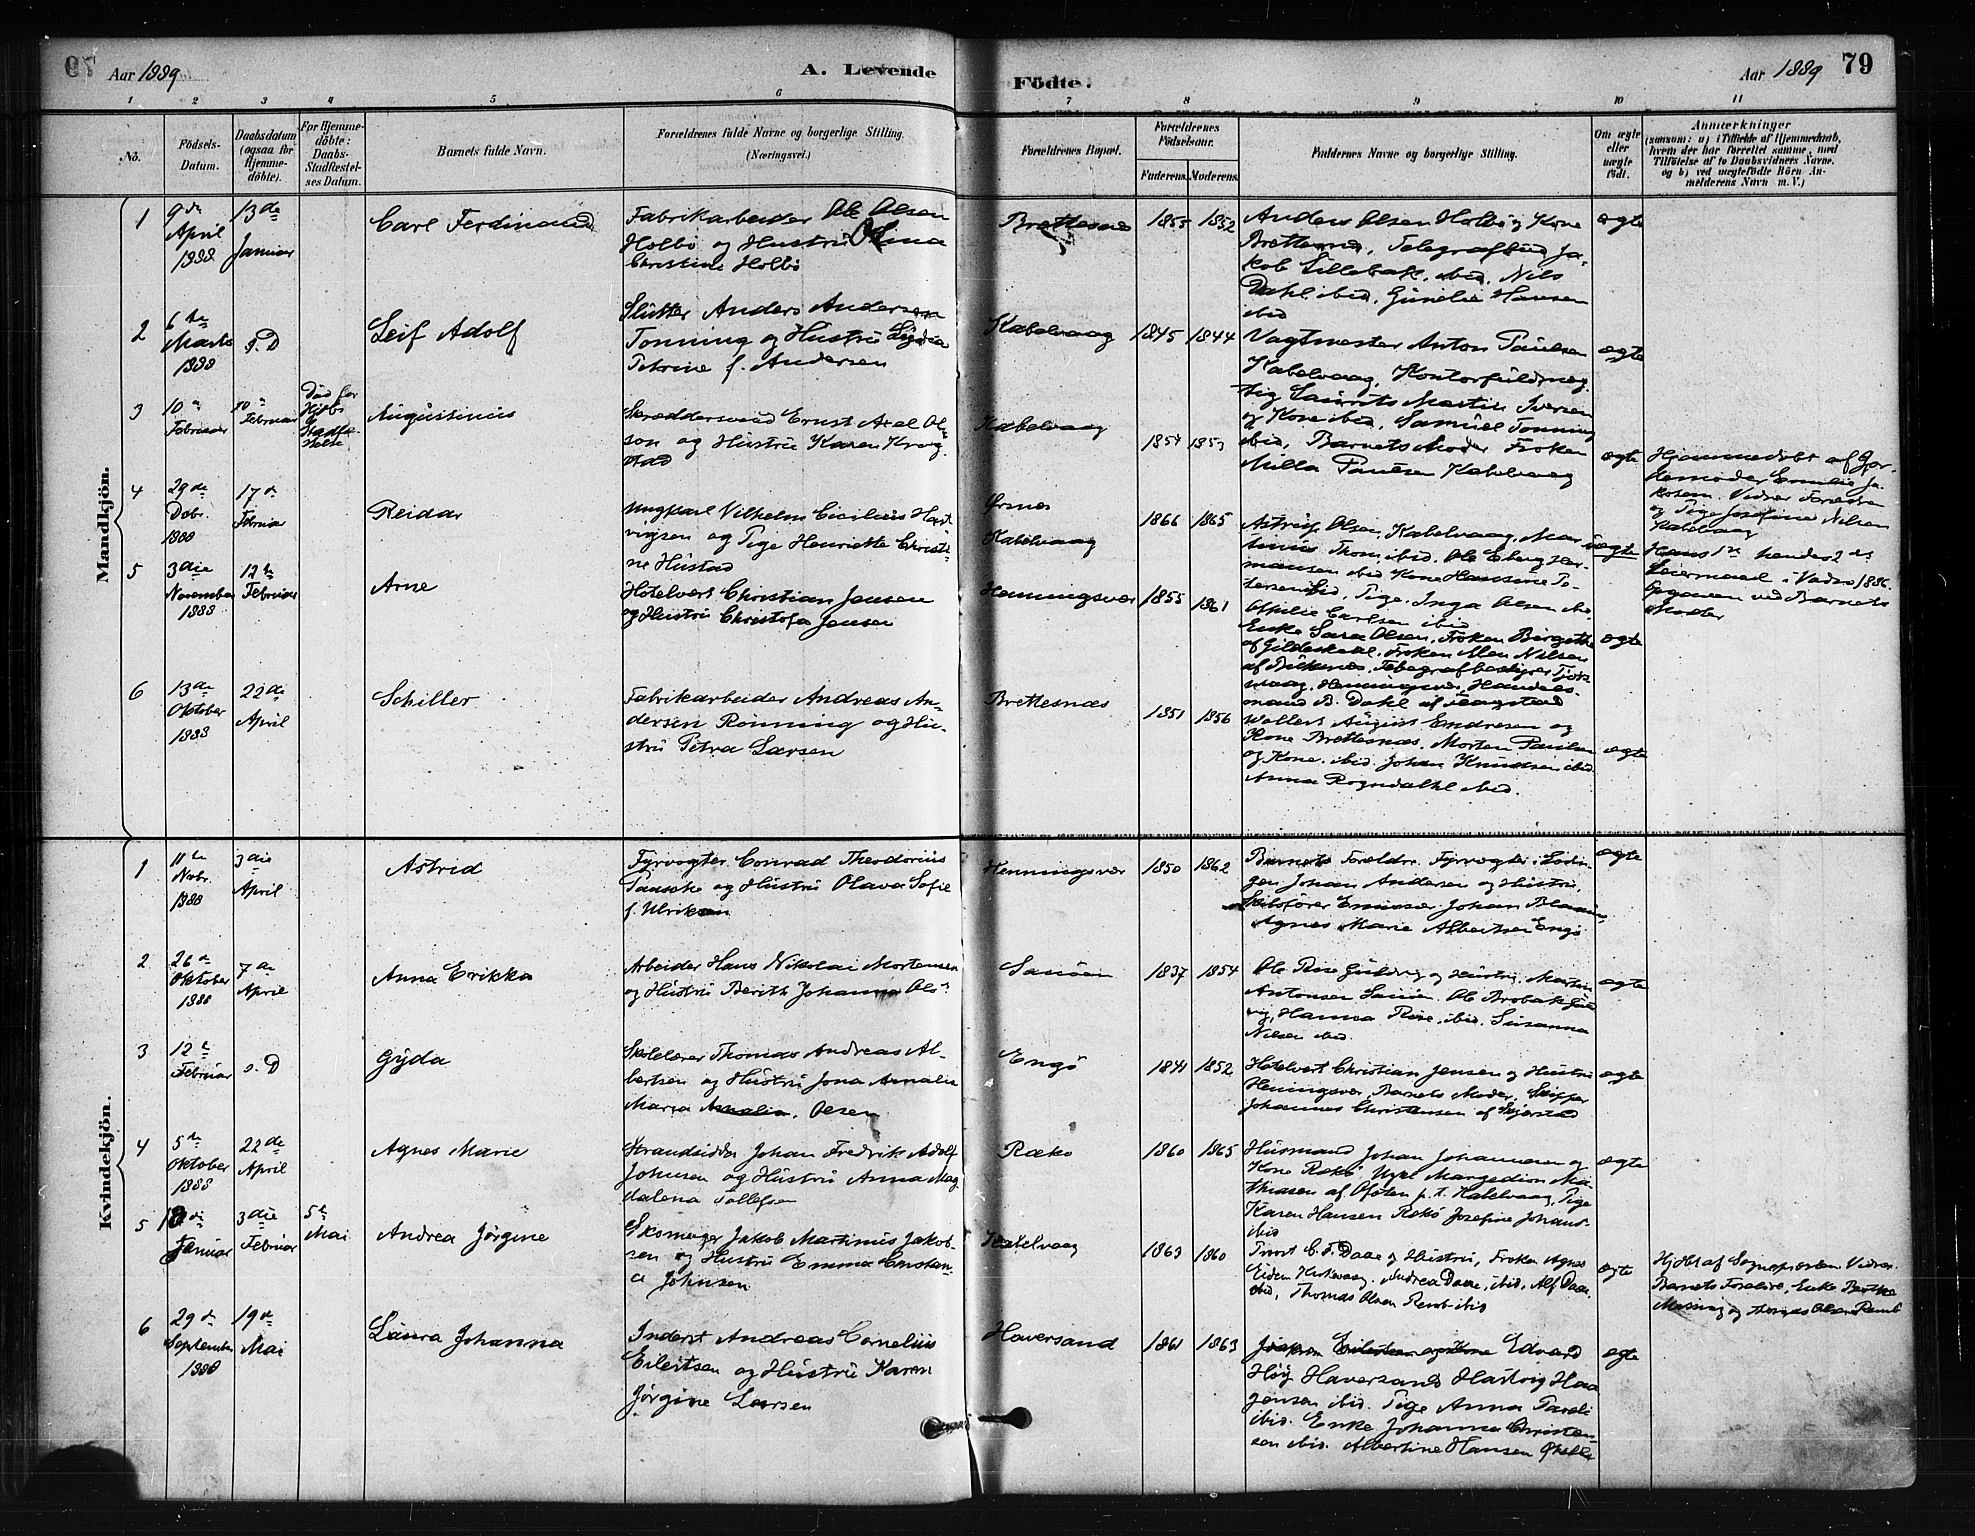 Aar 1889
A. Levende
Födte.
Aar 1889
79
1 2 3 4 5 6 7 8 9 10 11
No.
Födsels-
Datum.
Daabsdatum
(ogsaa for
Hjemme-
döbte).
For Hjemme-
döbte:
Daabs-
Stadfæstel-
ses Datum.
Barnets fulde Navn.
Forældrenes fulde Navne og borgerlige Stilling.
(Næringsvei.)
Forældrenes Bopæl.
Forældrenes
Födselsaar.
Faderens. Moderens.
Faddernes Navne og borgerlige Stilling.
Om ægte
eller
uægte
födt.
Anmærkninger
(saasom: a) i Tilfælde af Hjemmedaab,
hvem der har forrettet samme, med
Tilföielse af to Daabsvidners Navne.
og b) ved uægtefödte Börn An-
melderens Navn m. V.)
Mandkjön.
1
9de
April
1888
13de
Januar
Carl Ferdinand
Fabrikarbeider Ole Olsen
Holbö og Hustru Olina
Christine Holbö
Brettesnæs
1855 1852
Anders Olsen Holbö og Kone
Brettesnæs, Telegrafbud Ja-
kob Lillebak, ibid, Nils
Dahl ibid, Gunelie Hansen
ibid
ægte
2
6te
Marts
1888
s. D
Leif Adolf
Slutter Anders Andersen
Tonning og Hustru Lydia
Petrine f. Andersen
Kabelvaag
1845 1844
Vagtmester Anton Paulsen
Kabelvaag, Kontorfuldmæg-
tig Laurits Martin Iversen
og Kone ibid, Samuel Tonning
ibid, Barnets Moder Froken
Milla Paulsen Kabelvaag
ægte
3
10de
Februar
10de
Februar
Död för
Hjdbs
Stadfæ-
stelse
Augustinus
Skræddersvend Ernst Axel Ol-
son og Hustru Karen Krog-
stad
Kabelvaag
1854 1853
ægte
Hjemmedöbt af Jor-
demoder Emilie Ja-
kobsen. Vidner Forældre
og Pige Josefine Nilsen
Kabelvaag
4
29de
Dcbr.
1888
17de
Februar
Reidar
Ungkarl Vilhelm Cicilius Hart-
vigsen og Pige Henriette Christi-
ne Hustad
Örsnes
Kabelvaag
1866 1865
Astrup Olsen, Kabelvaag, Mar-
tinus Thom, ibid. Ole Eberg Her-
mansen ibid Kone Hansine Pe-
dersen ibid, Pige Inga Olsen ibid
Othilie Carlsen ibid
uægte
Hans 1ste hendes 2det
Leiermaal i Vadsø 1886.
Opgaven ved Barnets
Moder
5
3die
November
1888
12te
Februar
Arne
Hotelvert Christian Jensen
og Hustru Christofa Jensen
Henningsvær
1855 1861
Enke Sara Olsen, Froken Birgitte
af Gildeskaal. Froken Elen Nilsen
Henningsvær, Handels-
mand B. Dahl
ægte
6
13de
Oktober
1888
22de
April
Schiller
Fabrikarbeider Andreas An-
dersen Rönning og Hu-
stru Petra Larsen
Brettesnæs
1851 1856
Wollert August Endresen og
Kone Brettesnæs. Morten Paulsen
og Kone. ibid. Johan Knudsen ibid.
Anna Rogndahl ibid.
ægte
Kvindekjön.
1
11te
Nvbr.
1888
3die
April
Astrid
Fyrvogter Conrad Theodorius
Paasche og Hustru Olava Sofie
f. Ulriksen
Henningsvær
1850 1862
Barnets Forældre. Fyrvogter i Lödin-
gen Johan Andersen og Hustru,
Skibsförer Johan
Agnes Marie Albertsen Engö
ægte
2
26de
Oktober
1888
7de
April
Anna Erikka
Arbeider Hans Nikolai Mortensen
og Hustru Berith Johanna Ols
Sauöen
1837 1854
Ole Rise Gulvig og Hustru, Marten
Antonsen Sauöen. Ole Brobak Gul-
vig, Hanna Rise, ibid. Susanna
Nilsen ibid.
ægte
3
12te
Februar
s. D
Gyda
Skolelærer Thomas Andreas Al-
bertsen og Hustru Jona Amalie
Maria Amalia. Olsen
Engö
1841 1852
Hotelvert Christian Jensen og Hustru
Henningsvær, Barnets Moder, Skipper
Johannes Christensen af Skjerstad
ægte
4
5te
Oktober
1888
22de
April
Agnes Marie
Strandsidder Johan Fredrik Adolf
Johnsen og Hustru Anna Mag-
dalena Tollefsen
Rækö
1860 1865
Husmand Johan Johannesen og
Kone Rækö Ungk Margedion Ma-
thiasen af Ofoten p. t. Kabelvaag, Pige
Karen Hansen Rækö Josefine Johans-
ibid
ægte
5
18de
Januar
3die
Februar
5te
Mai
Andrea Jörgine
Skomager Jakob Martinus Jakob-
sen og Hustru Emma Constan-
ce Johnsen
Kabelvaag
1863 1860
Provst C. F. Daae og Hustru, Froken Agnes
Eidem Kirkevaag. Andrea Daae, ibid, Alf Daae
ibid, Thomas Olsen Remb ibid
ægte
Hj dbt af Sognepræsten. Vidner
Barnets Forældre, Enke Berthe
Messing og Thomas Olsen Remb
6
29de
September
1888
19de
Mai
Laura Johanna
Inderst Andreas Cornelius
Eilertsen og Hustru Karen
Jörgine Larsen
Haversand
1861 1863
Joakim Eilertsen og Kone Edvard
Höy Haversand Hartvig Haa-
gensen ibid. Pige Anna Pareli
ibid. Enke Johanna Christen-
sen ibid. Albertine Hansen
ægte